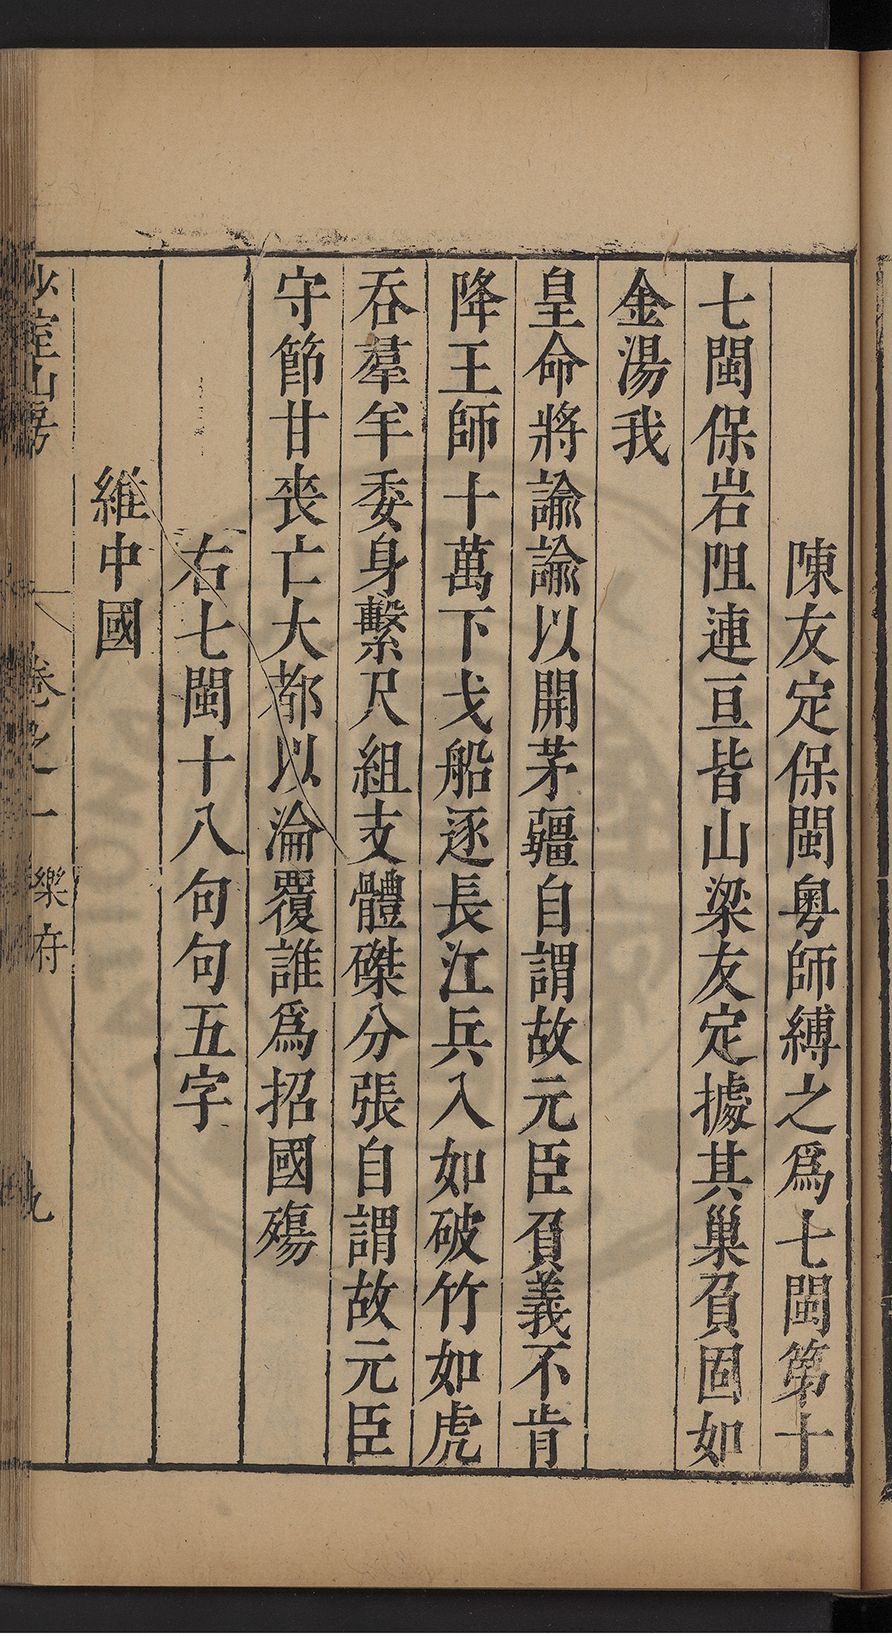 陳友定保閩粵師縛之爲七閩第十
七閩保岩阻連亘皆山梁友定據其巢負固如
金湯我
皇命將諭諭以開茅疆自謂故元臣負義不肯
降王師十萬下戈船逐長江兵入如破竹如虎
吞羣羊委身繫尺組支體磔分張自謂故元臣
守節甘丧亡大都以淪覆誰爲招國殤
右七閩十八句句五字
維中國
少室山房
卷之一
樂府
九